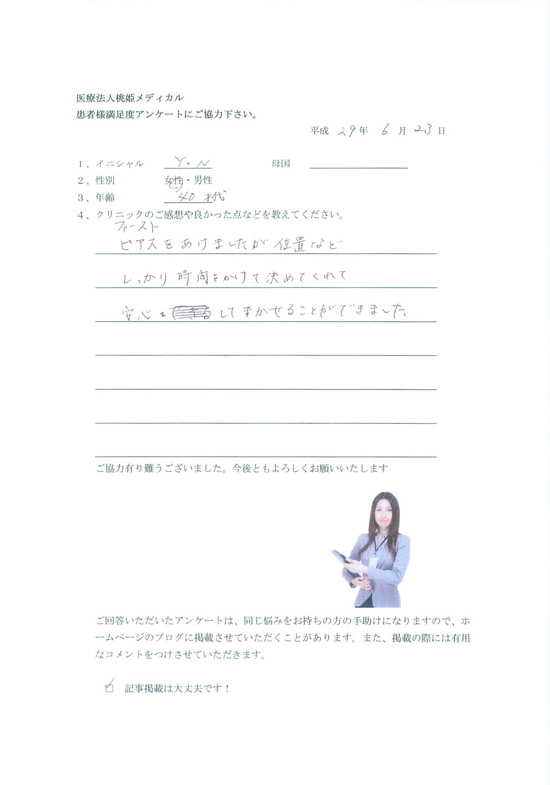 医療法人桃姫メディカル
患者様満足度アンケートにご協力下さい。
平成 29 年 6 月 23 日
1、イニシャル Y・N 母国
2、性別 女性・男性
3、年齢 40才代
4、クリニックのご感想や良かった点などを教えてください。
ファースト
ピアスをあけましたが位置など
しっかり時間をかけて決めてくれて
安心してまかせることができました。
ご協力有り難うございました。今後ともよろしくお願いいたします
ご回答いただいたアンケートは、同じ悩みをお持ちの方の手助けになりますので、ホ
ームページのブログに掲載させていただくことがあります。また、掲載の際には有用
なコメントをつけさせていただきます。
記事掲載は大丈夫です！